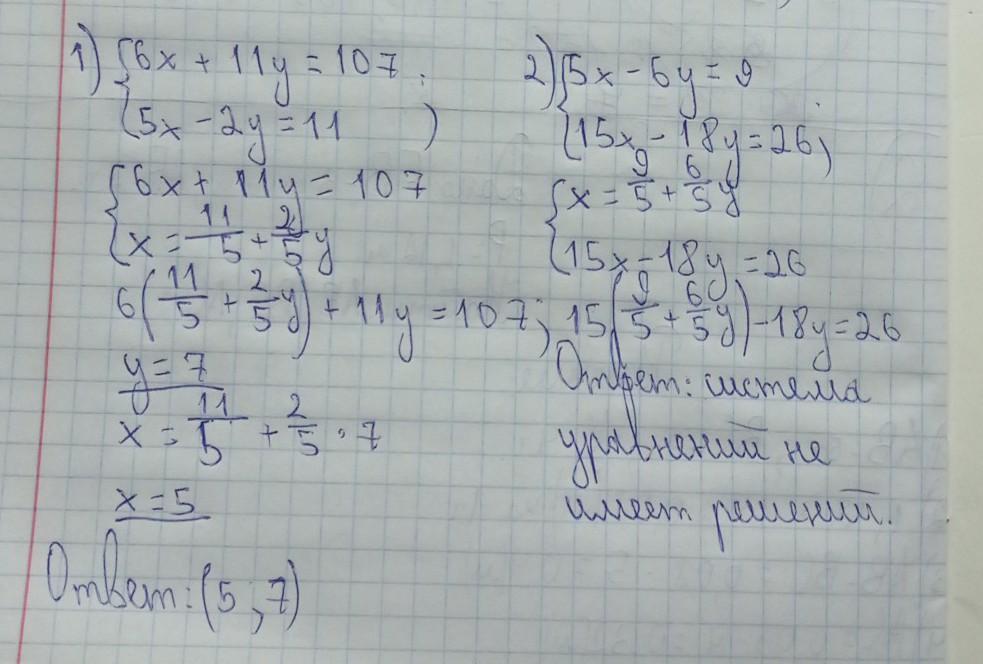 1) {6x + 11y = 107
{5x - 2y = 11 )
{6x + 11y = 107
{x = 11/5 + 2/5 y
6(11/5 + 2/5 y) + 11y = 107;
y = 7
x = 11/5 + 2/5 · 7
x = 5
Ответ: (5; 7)
2) {5x - 6y = 9
{15x - 18y = 26;
{x = 9/5 + 6/5 y
{15x - 18y = 26
15(9/5 + 6/5 y) - 18y = 26
Ответ: система
уравнений не
имеет решений.